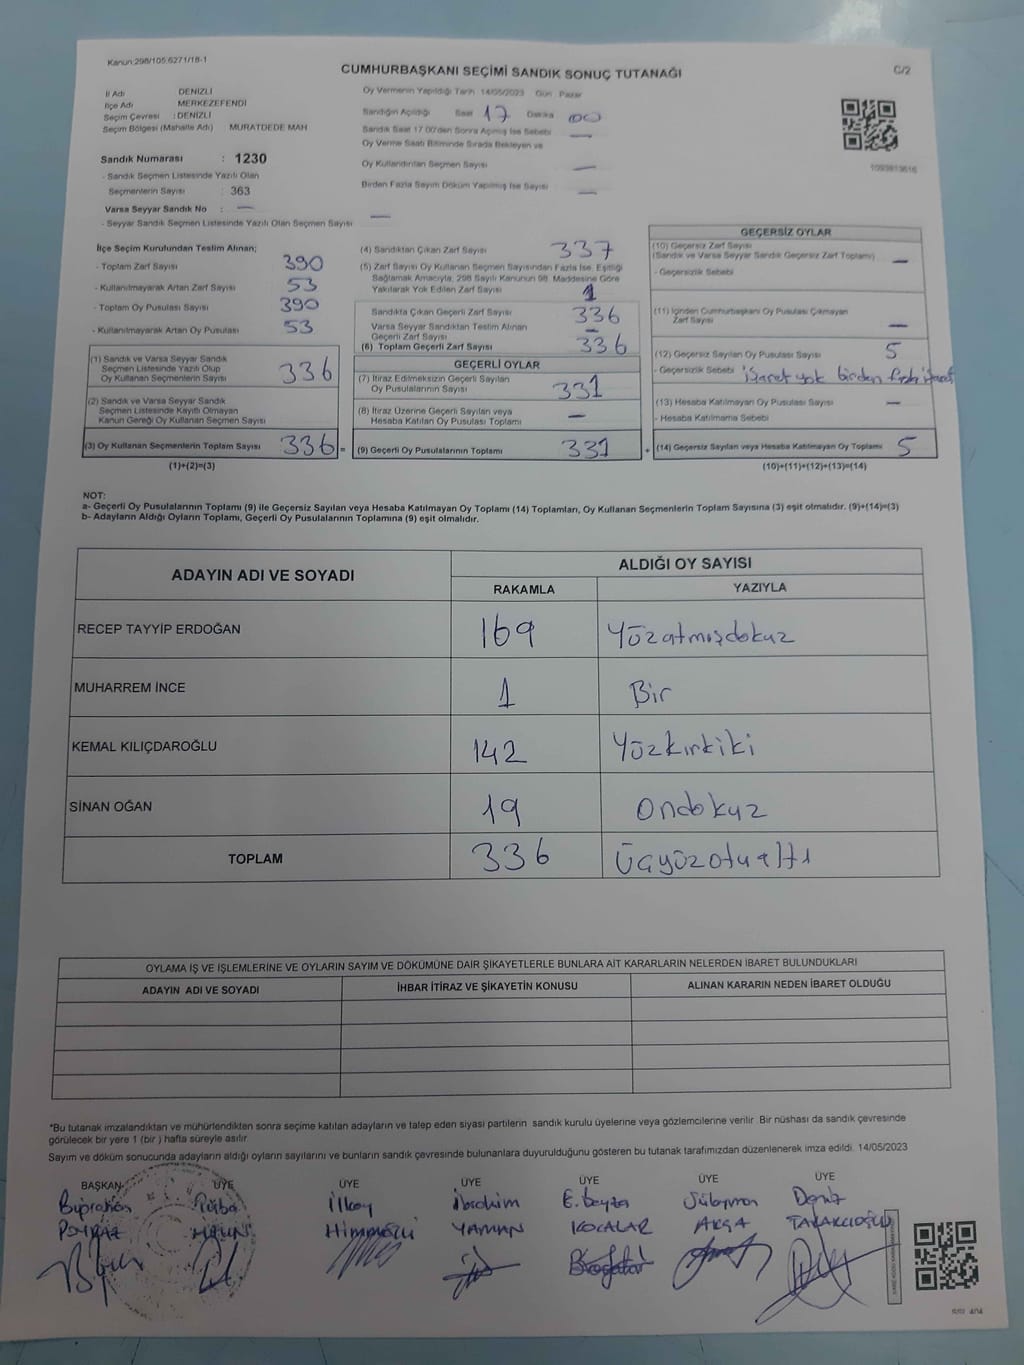 Kanun:298/105;6271/18-1
CUMHURBAŞKANI SEÇİMİ SANDIK SONUÇ TUTANAĞI
C/2
İl Adı : DENİZLİ
İlçe Adı : MERKEZEFENDİ
Seçim Çevresi : DENİZLİ
Seçim Bölgesi (Mahalle Adı) MURATDEDE MAH
Sandık Numarası : 1230
- Sandık Seçmen Listesinde Yazılı Olan
Seçmenlerin Sayısı : 363
Varsa Seyyar Sandık No : —
- Seyyar Sandık Seçmen Listesinde Yazılı Olan Seçmen Sayısı —
Oy Vermenin Yapıldığı Tarih : 14/05/2023 Gün : Pazar
Sandığın Açıldığı Saat 17 Dakika 00
Sandık Saat 17.00'den Sonra Açılmış İse Sebebi —
Oy Verme Saati Bitiminde Sırada Bekleyen ve
Oy Kullandırılan Seçmen Sayısı —
Birden Fazla Sayım Döküm Yapılmış İse Sayısı —
1093813616
İlçe Seçim Kurulundan Teslim Alınan;
- Toplam Zarf Sayısı 390
- Kullanılmayarak Artan Zarf Sayısı 53
- Toplam Oy Pusulası Sayısı 390
- Kullanılmayarak Artan Oy Pusulası 53
(1) Sandık ve Varsa Seyyar Sandık
Seçmen Listesinde Yazılı Olup
Oy Kullanan Seçmenlerin Sayısı 336
(2) Sandık ve Varsa Seyyar Sandık
Seçmen Listesinde Kayıtlı Olmayan
Kanun Gereği Oy Kullanan Seçmen Sayısı
(3) Oy Kullanan Seçmenlerin Toplam Sayısı 336 =
(1)+(2)=(3)
(4) Sandıktan Çıkan Zarf Sayısı 337
(5) Zarf Sayısı Oy Kullanan Seçmen Sayısından Fazla İse, Eşitliği
Sağlamak Amacıyla, 298 Sayılı Kanunun 98. Maddesine Göre
Yakılarak Yok Edilen Zarf Sayısı 1
Sandıkta Çıkan Geçerli Zarf Sayısı 336
Varsa Seyyar Sandıktan Teslim Alınan
Geçerli Zarf Sayısı —
(6) Toplam Geçerli Zarf Sayısı 336
GEÇERLİ OYLAR
(7) İtiraz Edilmeksizin Geçerli Sayılan
Oy Pusulalarının Sayısı 331
(8) İtiraz Üzerine Geçerli Sayılan veya
Hesaba Katılan Oy Pusulası Toplamı —
(9) Geçerli Oy Pusulalarının Toplamı 331 +
GEÇERSİZ OYLAR
(10) Geçersiz Zarf Sayısı
(Sandık ve Varsa Seyyar Sandık Geçersiz Zarf Toplamı) —
- Geçersizlik Sebebi
(11) İçinden Cumhurbaşkanı Oy Pusulası Çıkmayan
Zarf Sayısı —
(12) Geçersiz Sayılan Oy Pusulası Sayısı 5
- Geçersizlik Sebebi işaret yok birden fazla işaret
(13) Hesaba Katılmayan Oy Pusulası Sayısı —
- Hesaba Katılmama Sebebi
(14) Geçersiz Sayılan veya Hesaba Katılmayan Oy Toplamı 5
(10)+(11)+(12)+(13)=(14)
NOT:
a- Geçerli Oy Pusulalarının Toplamı (9) ile Geçersiz Sayılan veya Hesaba Katılmayan Oy Toplamı (14) Toplamları, Oy Kullanan Seçmenlerin Toplam Sayısına (3) eşit olmalıdır. (9)+(14)=(3)
b- Adayların Aldığı Oyların Toplamı, Geçerli Oy Pusulalarının Toplamına (9) eşit olmalıdır.
ADAYIN ADI VE SOYADI
ALDIĞI OY SAYISI
RAKAMLA YAZIYLA
RECEP TAYYİP ERDOĞAN 169 Yüzatmışdokuz
MUHARREM İNCE 1 Bir
KEMAL KILIÇDAROĞLU 142 Yüzkırkiki
SİNAN OĞAN 19 Ondokuz
TOPLAM 336 Üçyüzotualtı
OYLAMA İŞ VE İŞLEMLERİNE VE OYLARIN SAYIM VE DÖKÜMÜNE DAİR ŞİKAYETLERLE BUNLARA AİT KARARLARIN NELERDEN İBARET BULUNDUKLARI
ADAYIN ADI VE SOYADI İHBAR İTİRAZ VE ŞİKAYETİN KONUSU ALINAN KARARIN NEDEN İBARET OLDUĞU
*Bu tutanak imzalandıktan ve mühürlendikten sonra seçime katılan adayların ve talep eden siyasi partilerin sandık kurulu üyelerine veya gözlemcilerine verilir. Bir nüshası da sandık çevresinde
görülecek bir yere 1 (bir ) hafta süreyle asılır.
Sayım ve döküm sonucunda adayların aldığı oyların sayılarını ve bunların sandık çevresinde bulunanlara duyurulduğunu gösteren bu tutanak tarafımızdan düzenlenerek imza edildi. 14/05/2023
BAŞKAN ÜYE ÜYE ÜYE ÜYE ÜYE ÜYE
İlkay İbrahim E. Beyza Süleyman Deniz
YAMAN KOCALAR AKÇA